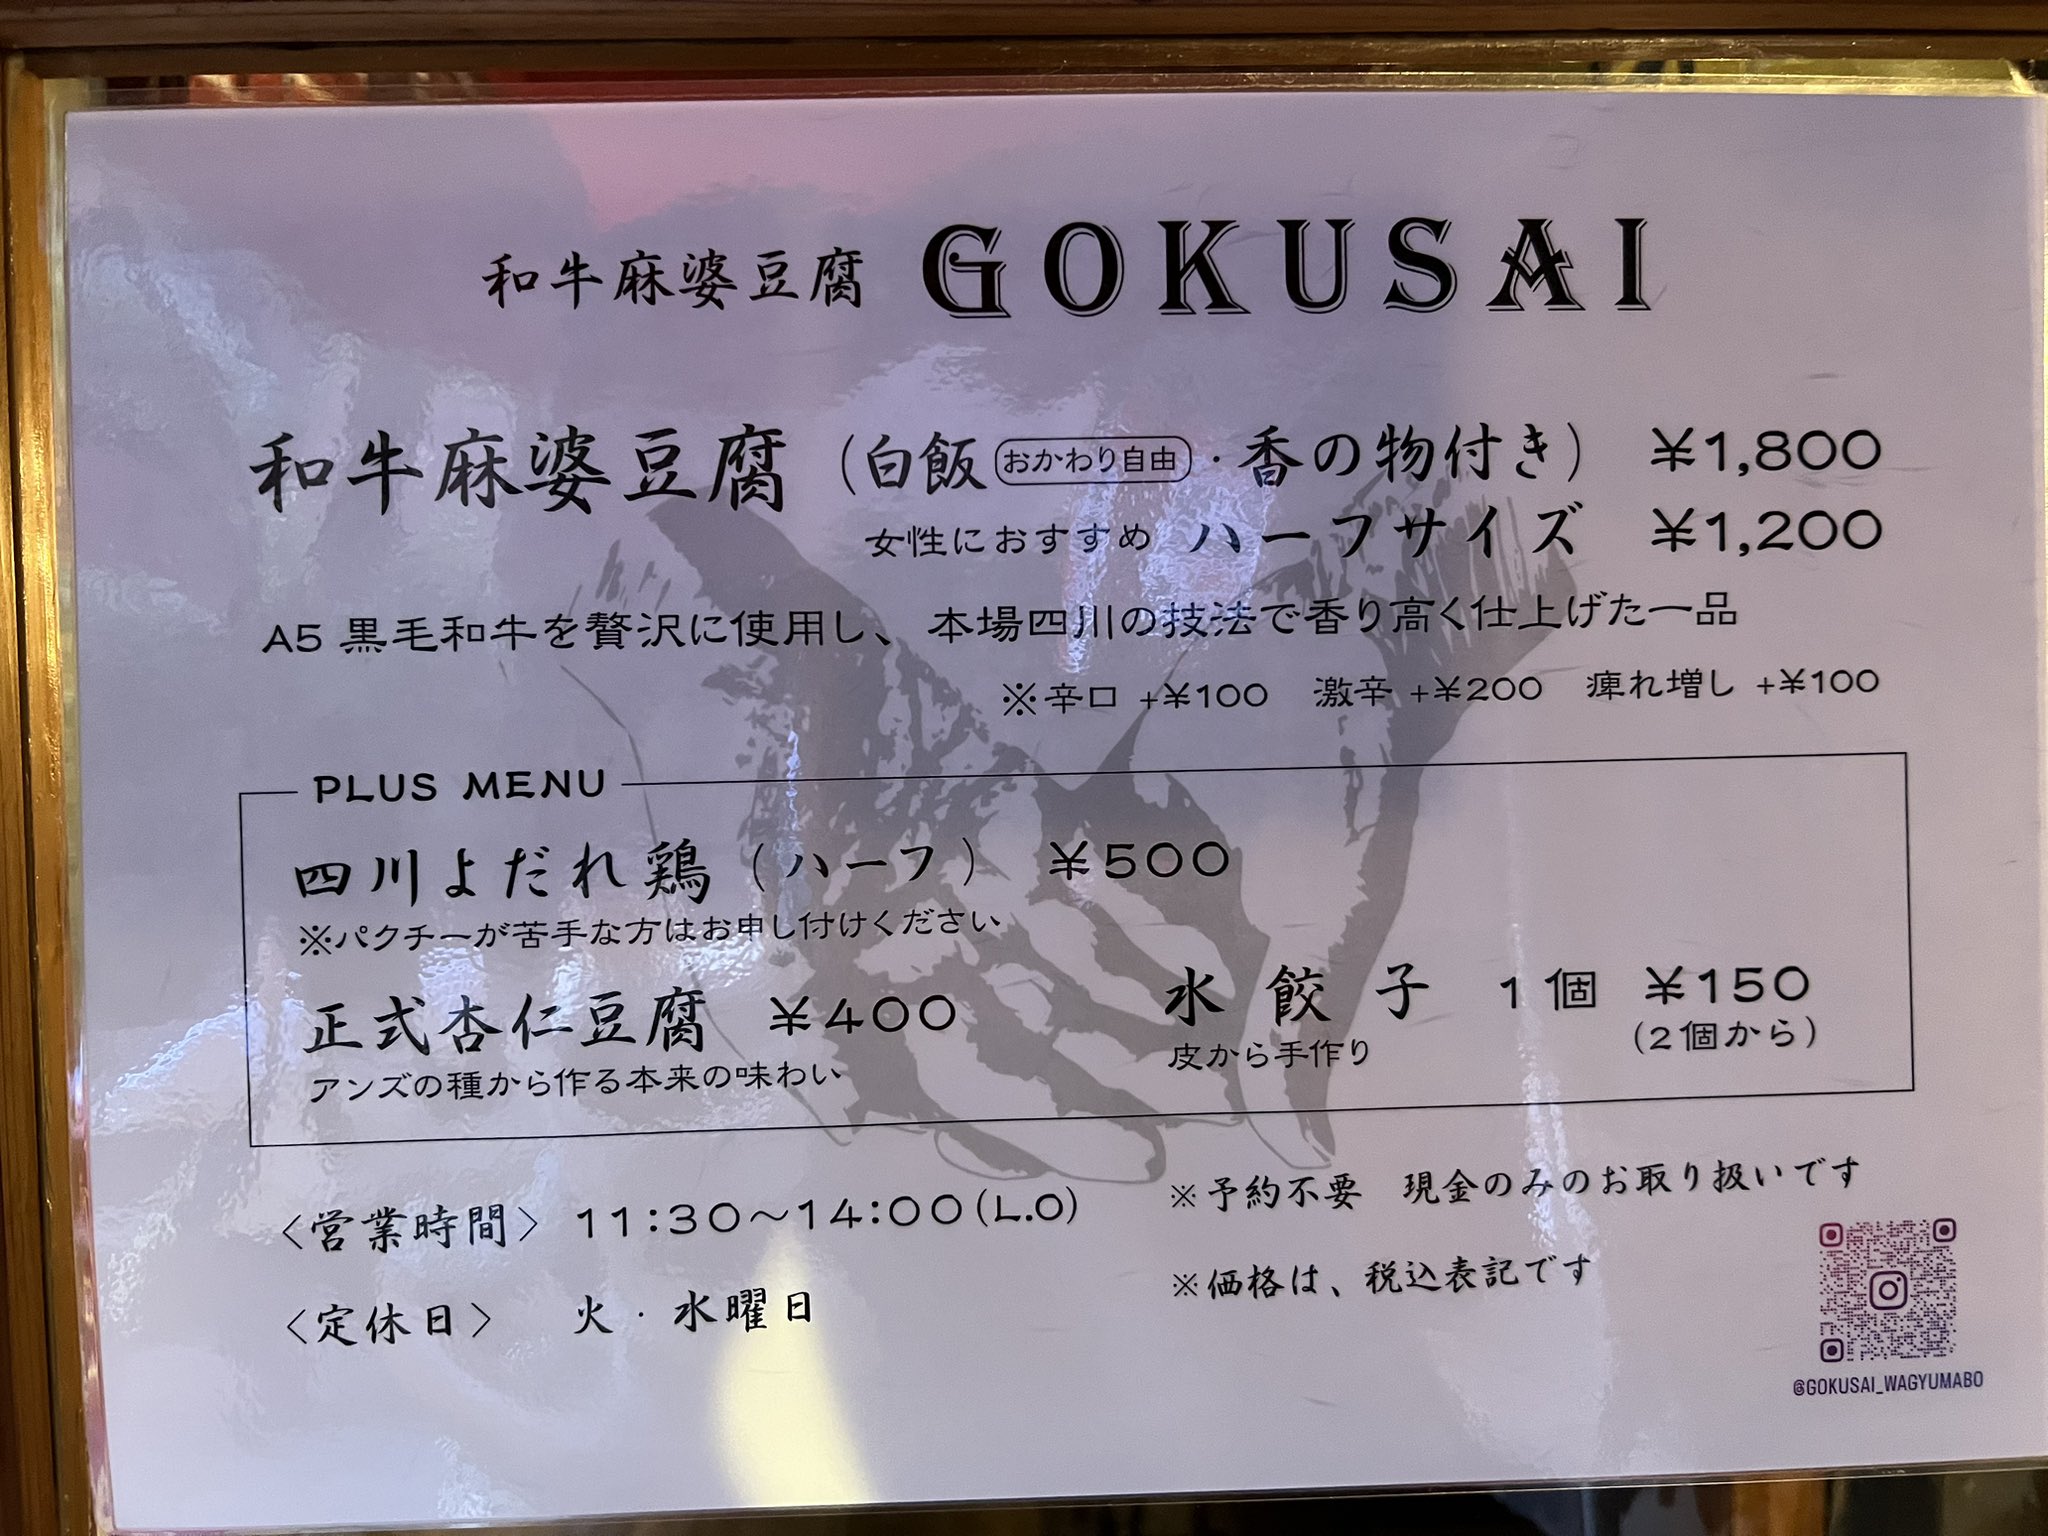 和牛麻婆豆腐 GOKUSAI
和牛麻婆豆腐(白飯 おかわり自由 ・香の物付き) ¥1,800
女性におすすめ ハーフサイズ ¥1,200
A5 黒毛和牛を贅沢に使用し、本場四川の技法で香り高く仕上げた一品
※辛口 +¥100 激辛 +¥200 痺れ増し +¥100
PLUS MENU
四川よだれ鶏(ハーフ) ¥500
※パクチーが苦手な方はお申し付けください
正式杏仁豆腐 ¥400
アンズの種から作る本来の味わい
水餃子 1個 ¥150
皮から手作り (2個から)
〈営業時間〉 11:30~14:00(L.O)
〈定休日〉 火・水曜日
※予約不要 現金のみのお取り扱いです
※価格は、税込表記です
@GOKUSAI_WAGYUMABO